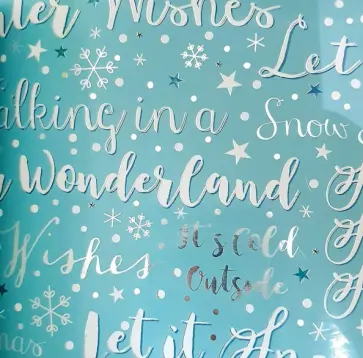 nter Wishes
Let
alking in a
Snow
Wonderland
Wishes
It's Cold
Outside
mas
Let it